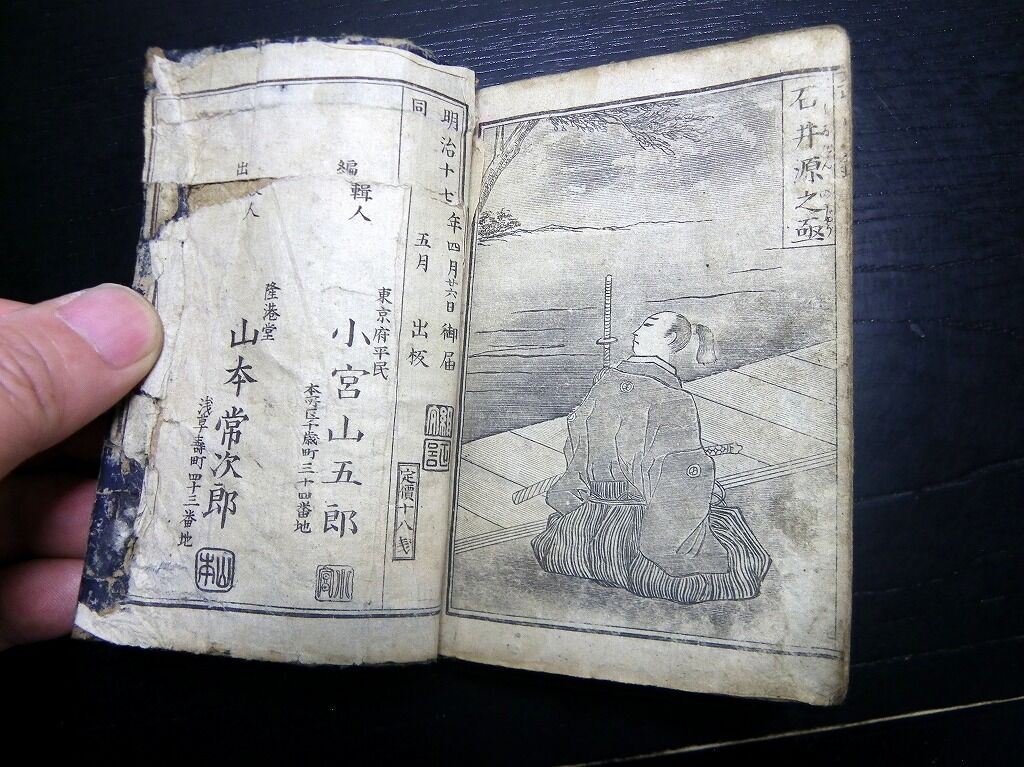 石井源之亟
明治十七年四月廿六日御届
同 五月 出板
定價十八戋
編輯人
東京府平民
小宮山五郎
本所区千歳町三十四番地
小宮
出 人
隆港堂
山本常次郎
浅草壽町四十三番地
山本